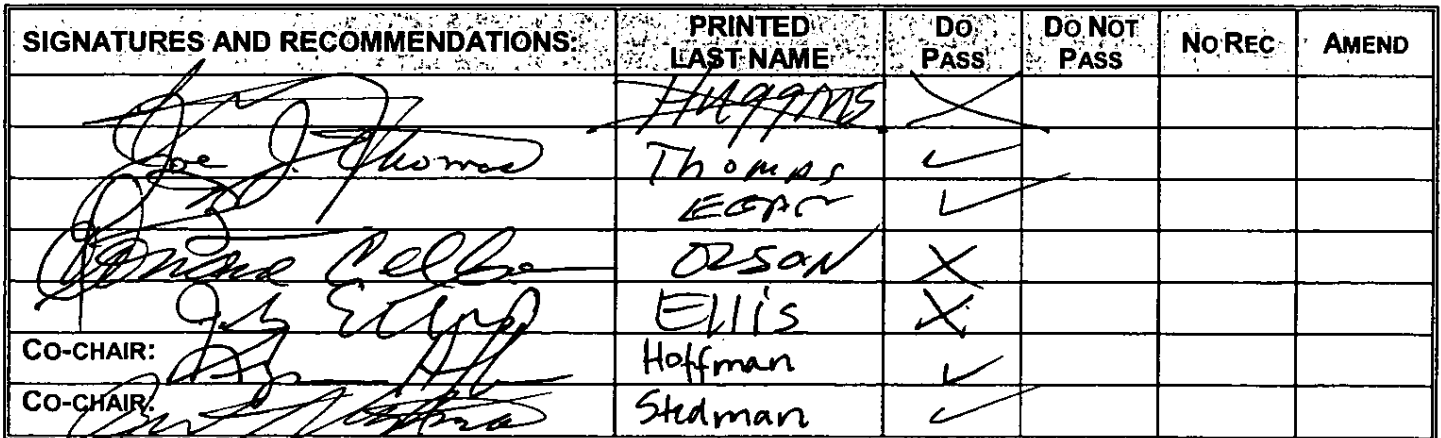 SIGNATURES AND RECOMMENDATIONS: PRINTED LAST NAME DO PASS DO NOT PASS NO REC AMEND
Huggins X
Joe J. Thomas Thomas ✓
Egan ✓
Olson X
Ellis X
CO-CHAIR: Hoffman ✓
CO-CHAIR: Stedman ✓